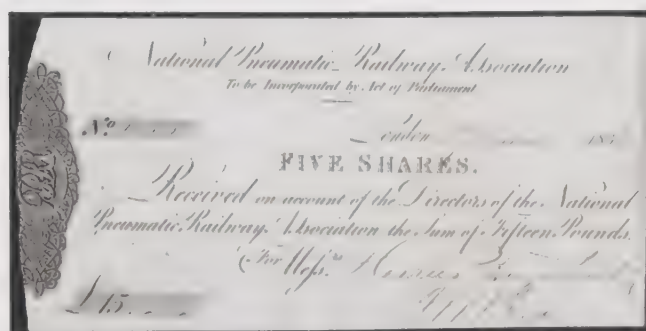 National Pneumatic Railway Association
To be Incorporated by Act of Parliament
No.
London 183
FIVE SHARES.
Received on account of the Directors of the National
Pneumatic Railway Association the Sum of Fifteen Pounds.
For Messrs.
£15